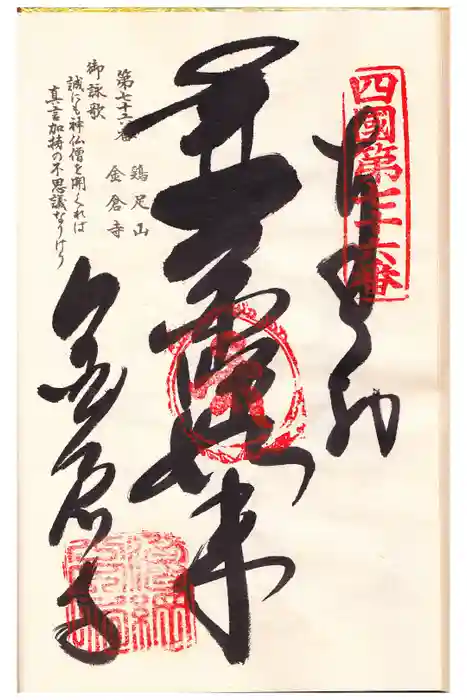 四國第七十六番
如来
第七十六番
鶏足山
金倉寺
御詠歌
誠にも神仏僧を開くれば
真言加持の不思議なりけり
金倉寺